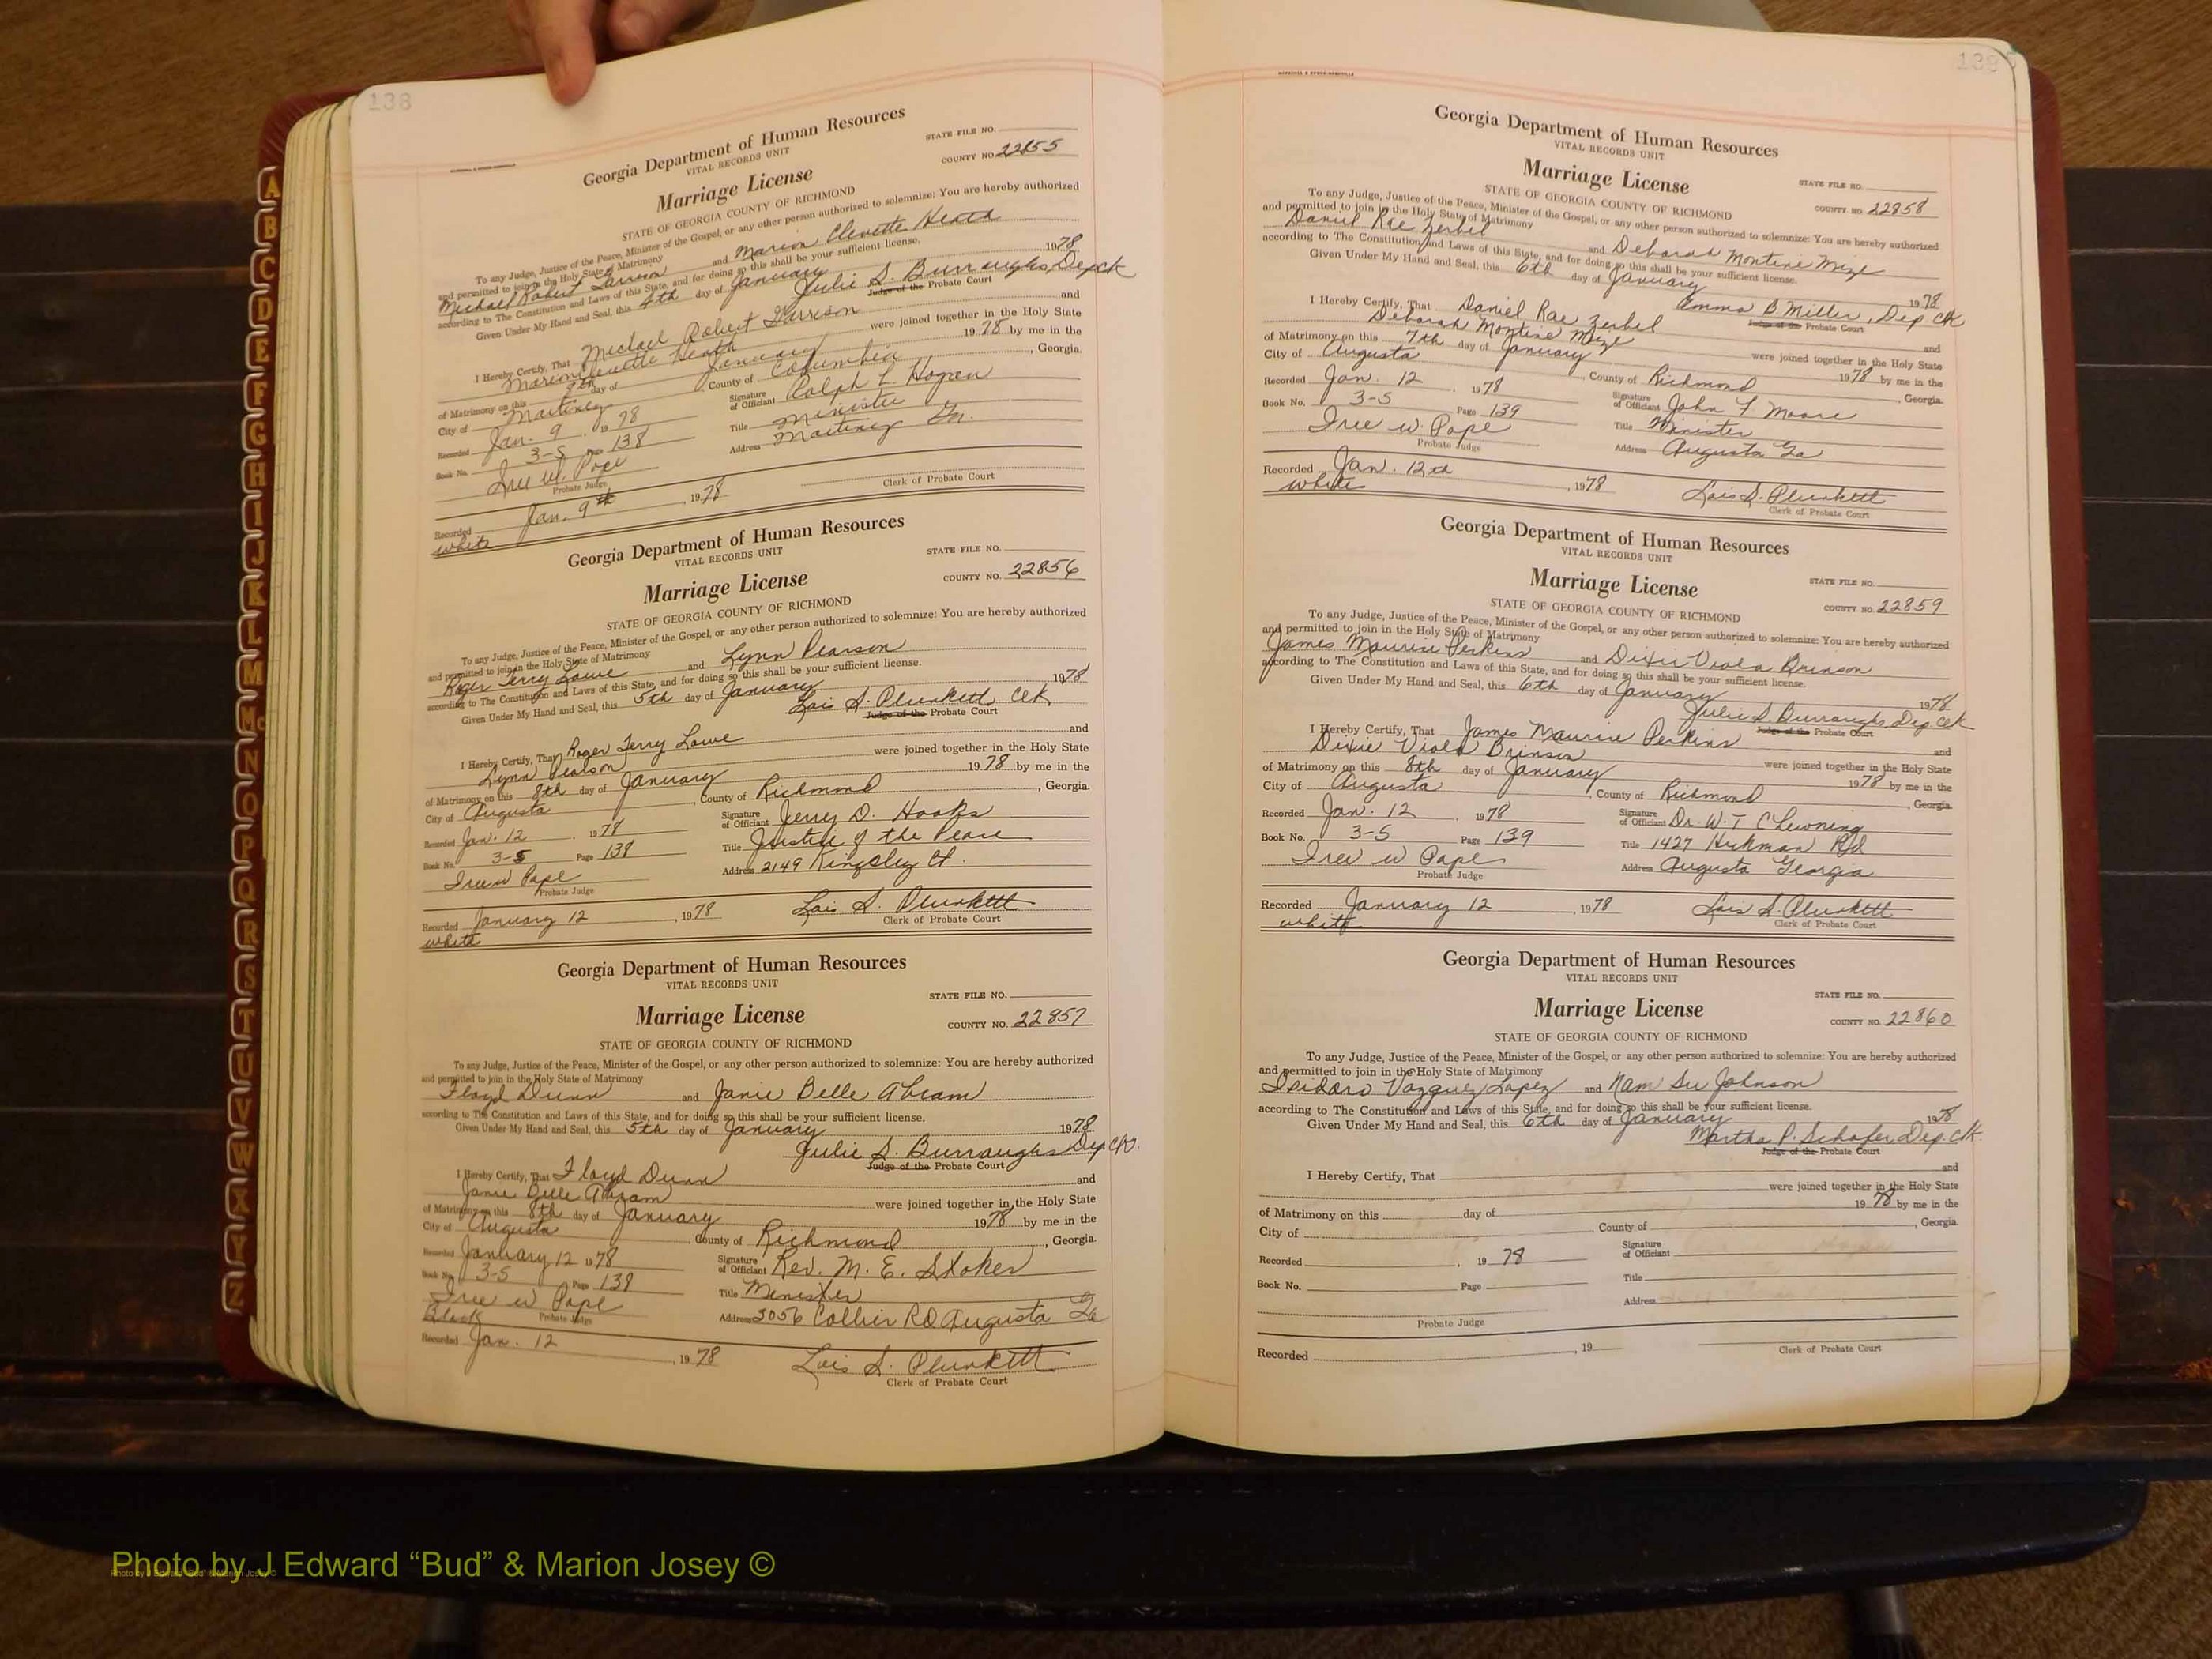 138
Georgia Department of Human Resources
VITAL RECORDS UNIT
STATE FILE NO.
Marriage License
COUNTY NO. 22855
STATE OF GEORGIA COUNTY OF RICHMOND
To any Judge, Justice of the Peace, Minister of the Gospel, or any other person authorized to solemnize: You are hereby authorized
and permitted to join in the Holy State of Matrimony
Michael Robert Garrison and Marion Clevette Heath
according to The Constitution and Laws of this State, and for doing so this shall be your sufficient license.
Given Under My Hand and Seal, this 4th day of January 1978
Julie S. Burroughs, Dep Ck
Judge of the Probate Court
I Hereby Certify, That Michael Robert Garrison and
Marion Clevette Heath were joined together in the Holy State
of Matrimony on this 8th day of January 1978 by me in the
City of Martinez, County of Columbia, Georgia.
Recorded Jan. 9 1978
Signature of Officiant Ralph L. Hogan
Book No. 3-S Page 138
Title Minister
Iree W. Pope
Address Martinez Ga.
Probate Judge
Recorded Jan. 9th, 1978
Clerk of Probate Court
white
Georgia Department of Human Resources
VITAL RECORDS UNIT
STATE FILE NO.
Marriage License
COUNTY NO. 22856
STATE OF GEORGIA COUNTY OF RICHMOND
To any Judge, Justice of the Peace, Minister of the Gospel, or any other person authorized to solemnize: You are hereby authorized
and permitted to join in the Holy State of Matrimony
Roger Terry Lowe and Lynn Pearson
according to The Constitution and Laws of this State, and for doing so this shall be your sufficient license.
Given Under My Hand and Seal, this 5th day of January 1978
Lois S. Plunkett, Clk
Judge of the Probate Court
I Hereby Certify, That Roger Terry Lowe and
Lynn Pearson were joined together in the Holy State
of Matrimony on this 8th day of January 1978 by me in the
City of Augusta, County of Richmond, Georgia.
Recorded Jan. 12, 1978
Signature of Officiant Jerry D. Hooks
Book No. 3-S Page 138
Title Justice of the Peace
Iree W Pope
Address 2149 Kingsley Ct.
Probate Judge
Recorded January 12, 1978
Lois S. Plunkett
Clerk of Probate Court
white
Georgia Department of Human Resources
VITAL RECORDS UNIT
STATE FILE NO.
Marriage License
COUNTY NO. 22857
STATE OF GEORGIA COUNTY OF RICHMOND
To any Judge, Justice of the Peace, Minister of the Gospel, or any other person authorized to solemnize: You are hereby authorized
and permitted to join in the Holy State of Matrimony
Floyd Dunn and Janie Belle Abram
according to The Constitution and Laws of this State, and for doing so this shall be your sufficient license.
Given Under My Hand and Seal, this 5th day of January 1978
Julie S. Burroughs Dep. Ck.
Judge of the Probate Court
I Hereby Certify, That Floyd Dunn and
Janie Belle Abram were joined together in the Holy State
of Matrimony on this 8th day of January 1978 by me in the
City of Augusta, County of Richmond, Georgia.
Recorded January 12 1978
Signature of Officiant Rev. M. E. Stoker
Book No. 3-S Page 138
Title Minister
Iree W Pope
Address 3056 Collier RD Augusta Ga
Black Probate Judge
Recorded Jan. 12, 1978
Lois S. Plunkett
Clerk of Probate Court
139
Georgia Department of Human Resources
VITAL RECORDS UNIT
Marriage License
STATE FILE NO.
STATE OF GEORGIA COUNTY OF RICHMOND
COUNTY NO. 22858
To any Judge, Justice of the Peace, Minister of the Gospel, or any other person authorized to solemnize: You are hereby authorized
and permitted to join in the Holy State of Matrimony
Daniel Rae Zerbel and Deborah Montine Mize
according to The Constitution and Laws of this State, and for doing so this shall be your sufficient license.
Given Under My Hand and Seal, this 6th day of January 1978
Emma B. Miller, Dep Clk
Judge of the Probate Court
I Hereby Certify, That Daniel Rae Zerbel and
Deborah Montine Mize were joined together in the Holy State
of Matrimony on this 7th day of January 1978 by me in the
City of Augusta, County of Richmond, Georgia.
Recorded Jan. 12, 1978
Signature of Officiant John F. Moore
Book No. 3-S Page 139
Title Minister
Iree W. Pope
Address Augusta Ga
Probate Judge
Recorded Jan. 12th, 1978
Lois S. Plunkett
Clerk of Probate Court
white
Georgia Department of Human Resources
VITAL RECORDS UNIT
Marriage License
STATE FILE NO.
STATE OF GEORGIA COUNTY OF RICHMOND
COUNTY NO. 22859
To any Judge, Justice of the Peace, Minister of the Gospel, or any other person authorized to solemnize: You are hereby authorized
and permitted to join in the Holy State of Matrimony
James Maurice Perkins and Dixie Viola Brinson
according to The Constitution and Laws of this State, and for doing so this shall be your sufficient license.
Given Under My Hand and Seal, this 6th day of January 1978
Julie S. Burroughs, Dep Clk
Judge of the Probate Court
I Hereby Certify, That James Maurice Perkins and
Dixie Viola Brinson were joined together in the Holy State
of Matrimony on this 8th day of January 1978 by me in the
City of Augusta, County of Richmond, Georgia.
Recorded Jan. 12, 1978
Signature of Officiant Dr. W. T Chewning
Book No. 3-S Page 139
Title 1427 Hickman Rd
Iree W Pope
Address Augusta Georgia
Probate Judge
Recorded January 12, 1978
Lois S. Plunkett
Clerk of Probate Court
white
Georgia Department of Human Resources
VITAL RECORDS UNIT
STATE FILE NO.
Marriage License
COUNTY NO. 22860
STATE OF GEORGIA COUNTY OF RICHMOND
To any Judge, Justice of the Peace, Minister of the Gospel, or any other person authorized to solemnize: You are hereby authorized
and permitted to join in the Holy State of Matrimony
Isidoro Vazquez Lopez and Nam Su Johnson
according to The Constitution and Laws of this State, and for doing so this shall be your sufficient license.
Given Under My Hand and Seal, this 6th day of January 1978
Martha P. Schafer Dep. Clk.
Judge of the Probate Court
I Hereby Certify, That and
were joined together in the Holy State
of Matrimony on this day of 1978 by me in the
City of, County of, Georgia.
Recorded, 1978
Signature of Officiant
Book No. Page
Title
Address
Probate Judge
Recorded, 19
Clerk of Probate Court
A
B
C
D
E
F
G
H
I
J
K
L
M
Mc
N
O
P
Q
R
S
T
U
V
W
X
Y
Z
Photo by J Edward “Bud” & Marion Josey ©
Photo by J Edward “Bud” & Marion Josey ©